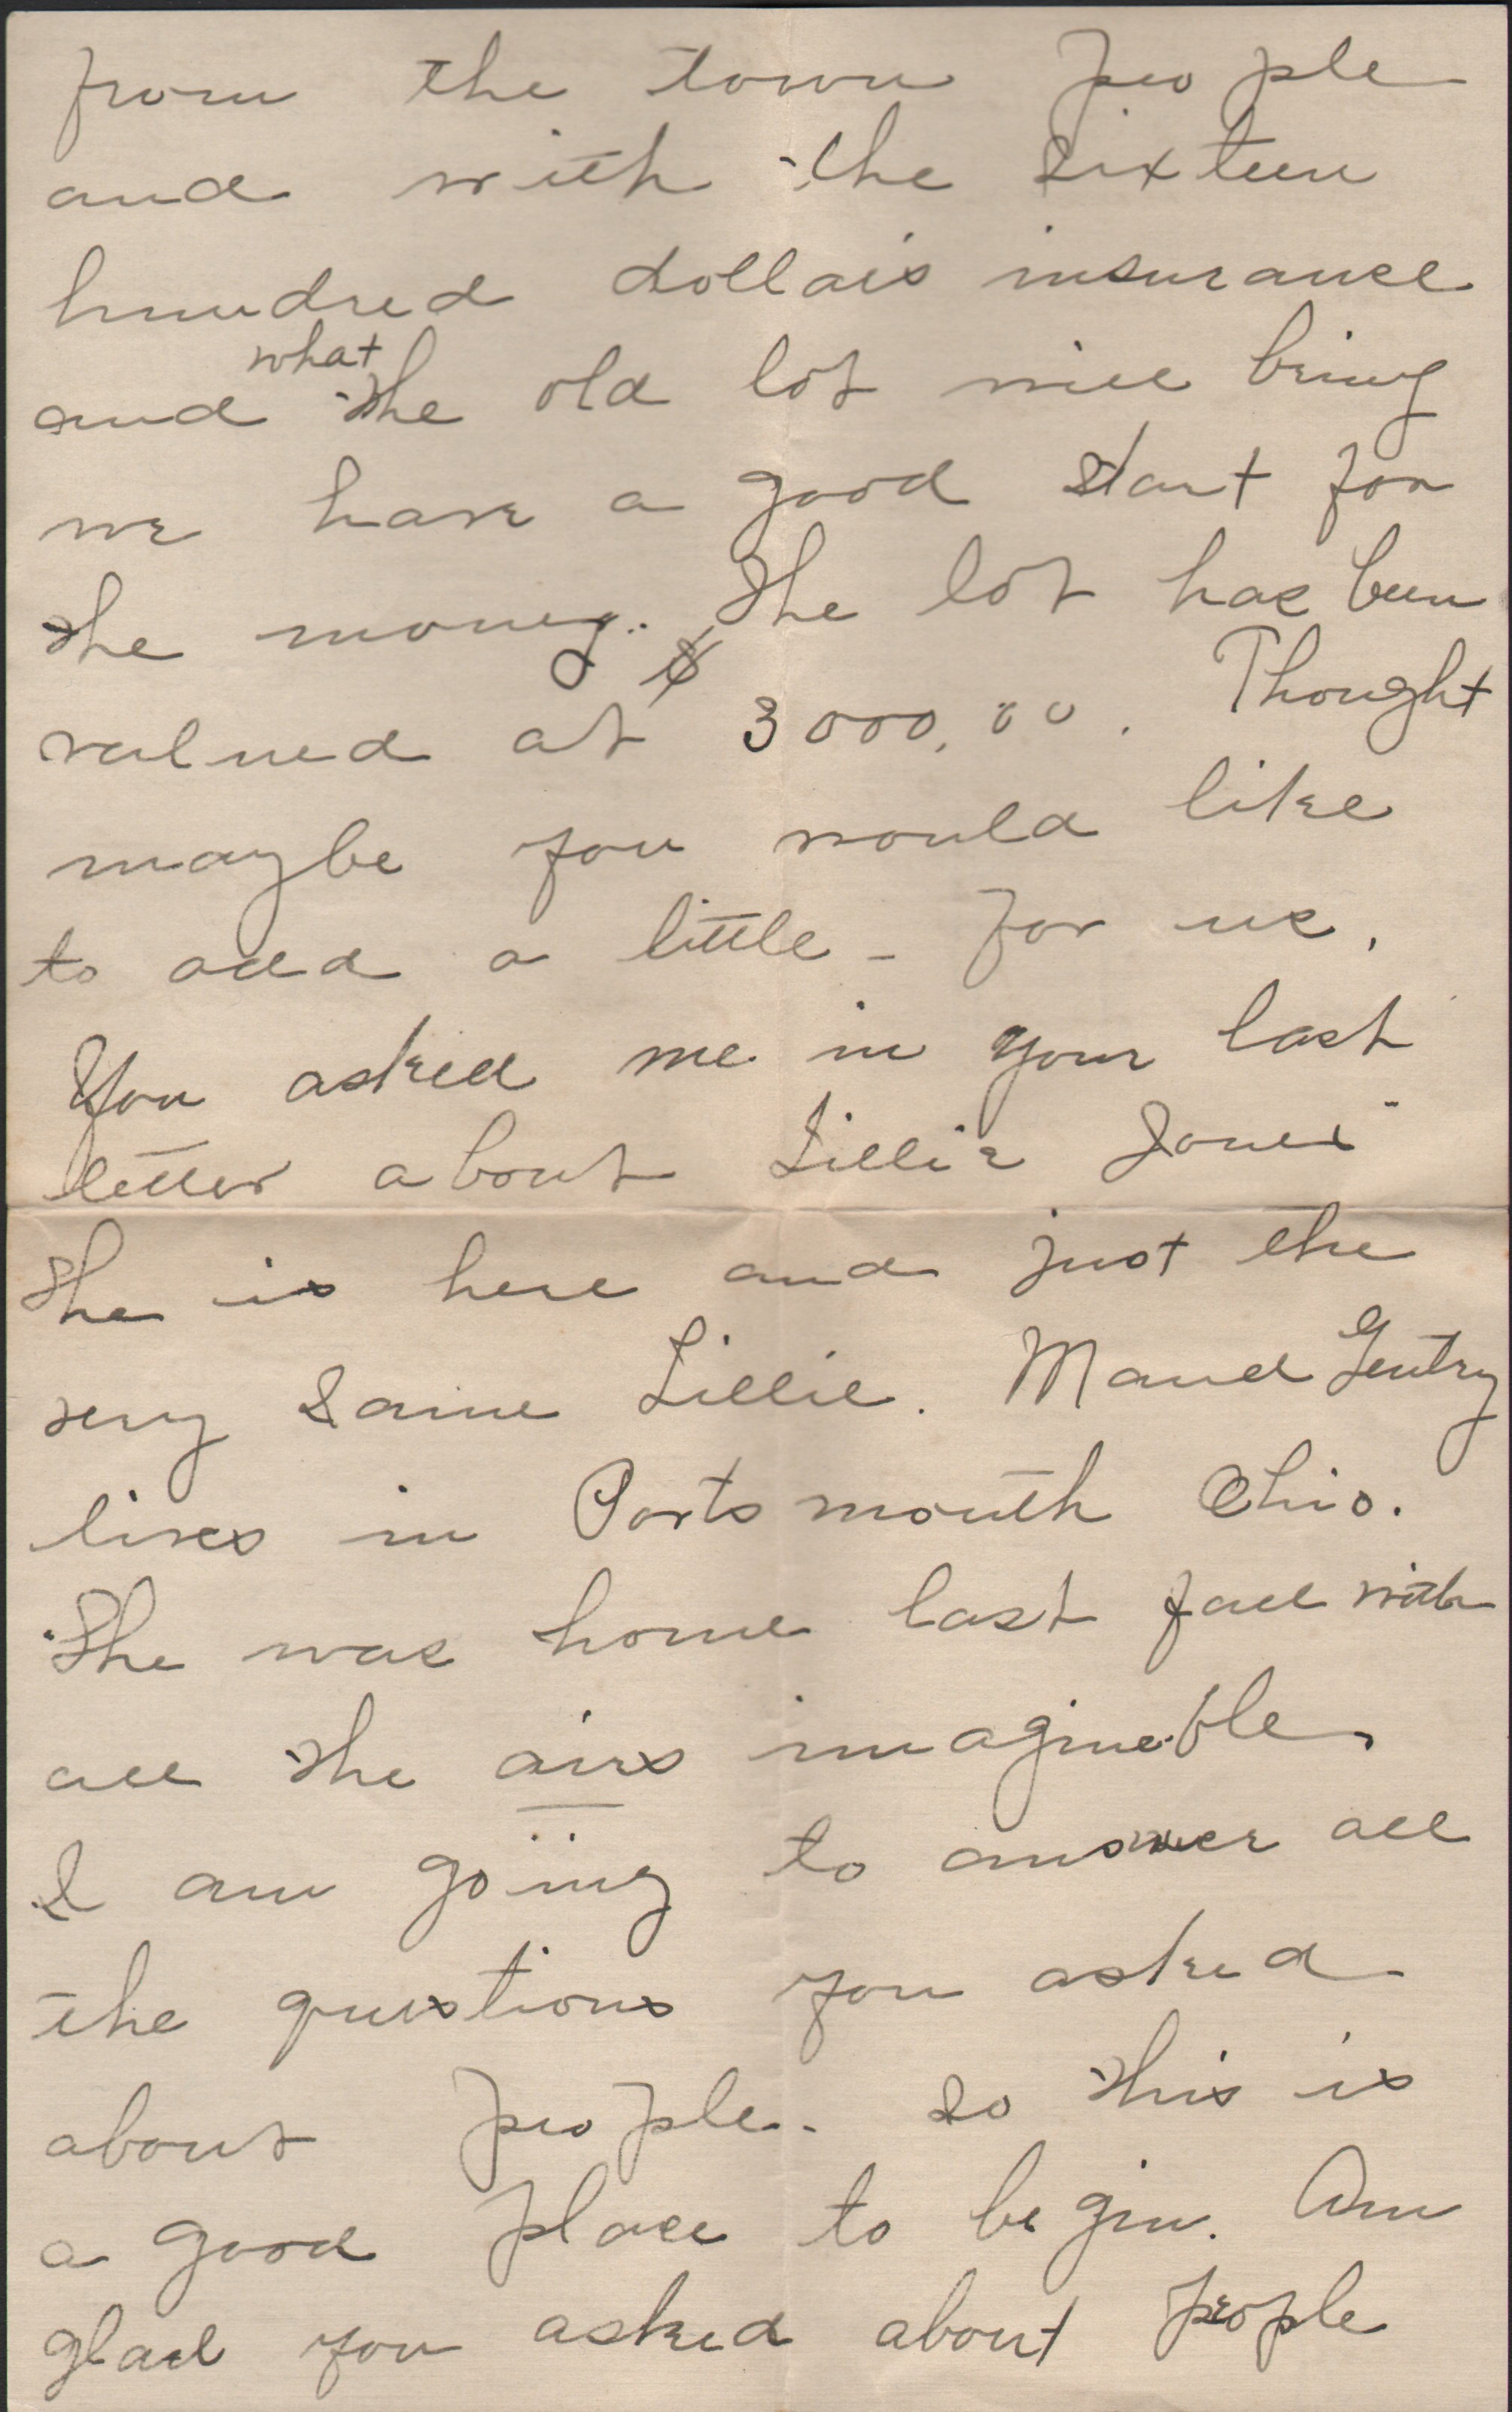 from the town people
and with the sixteen
hundred dollars insurance
what
and the old lot will bring
we have a good start for
the money. The lot has been
valued at $3000.00. Thought
maybe you would like
to add a little - for us.
You asked me in your last
letter about Lillie Jones -
She is here and just the
very same Lillie. Maud Gentry
lives in Portsmouth Ohio.
She was home last fall with
all the airs imagineble.
I am going to answer all
the questions you asked
about people - so this is
a good place to begin. Am
glad you asked about people